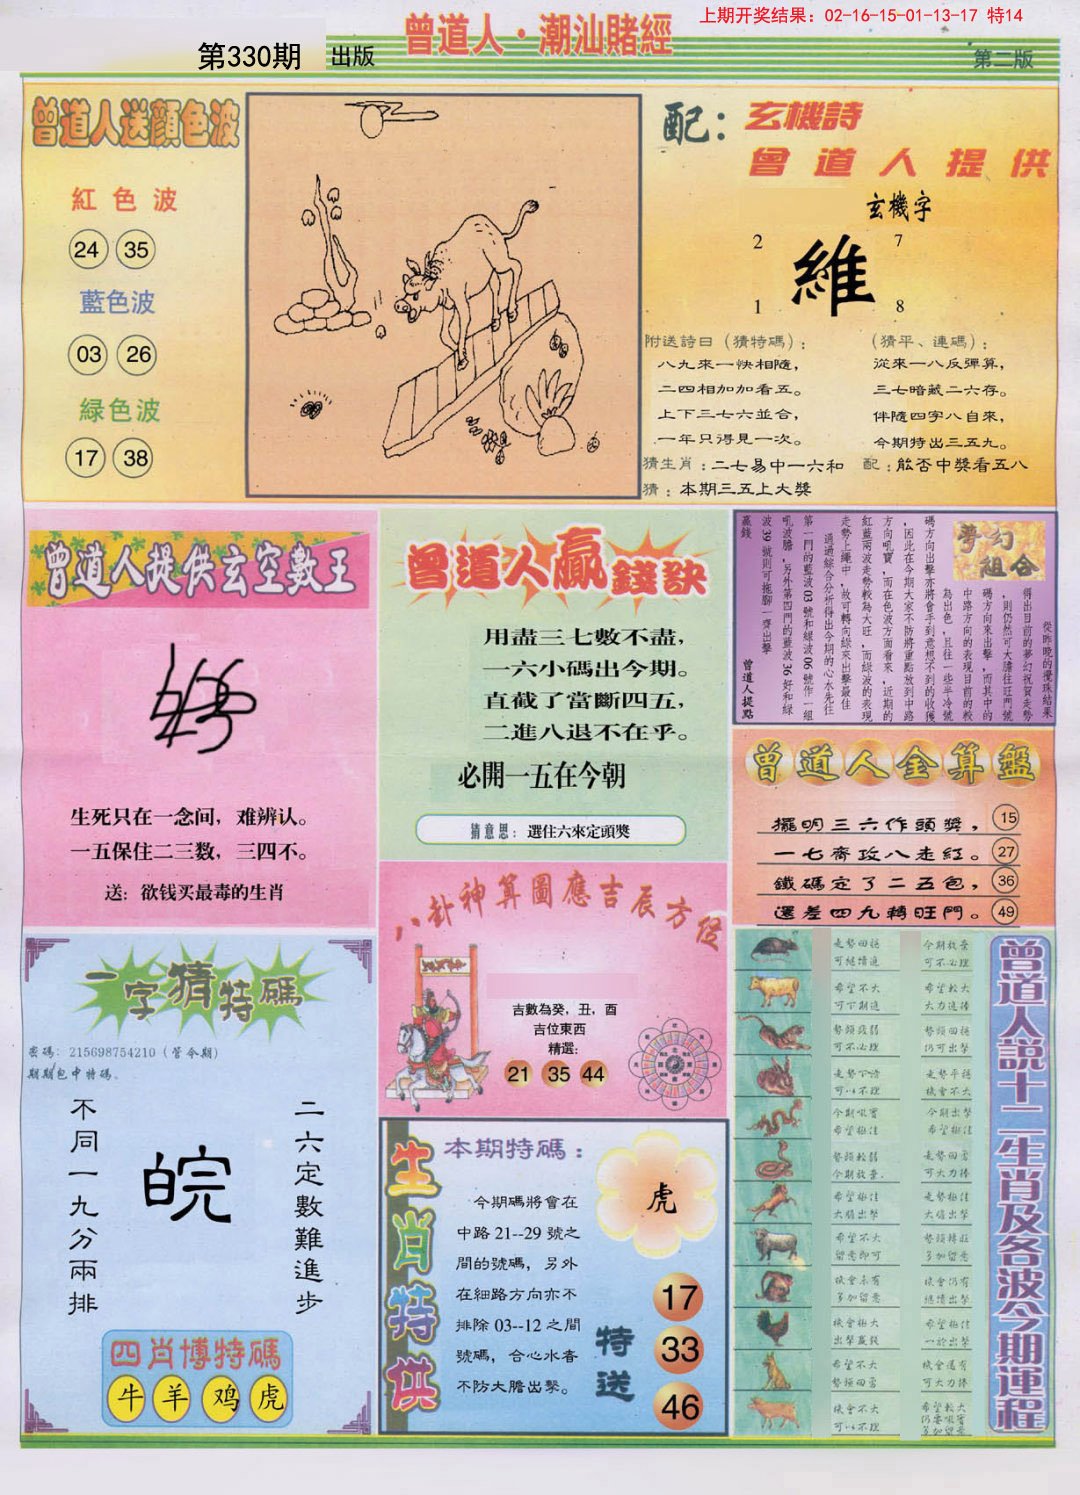 上期开奖结果：02-16-15-01-13-17 特14
第330期 出版
曾道人·潮汕賭經
第二版
曾道人送顔色波
紅色波
24 35
藍色波
03 26
緑色波
17 38
配：玄機詩
曾道人提供
玄機字
2 7
維
1 8
附送詩曰（猜特碼）：
八九來一快相隨，
二四相加加看五。
上下三七六並合，
一年只得見一次。
（猜平、連碼）：
從來一八反彈算，
三七暗藏二六存。
伴隨四字八自來，
今期特出三五九。
猜生肖：二七易中一六和
配：能否中獎看五八
猜：本期三五上大獎
曾道人提供玄空數王
生死只在一念间，难辨认。
一五保住二三数，三四不。
送：欲钱买最毒的生肖
曾道人贏錢訣
用盡三七數不盡，
一六小碼出今期。
直截了當斷四五，
二進八退不在乎。
必開一五在今朝
猜意思：選住六來定頭獎
夢幻組合
從昨晚的攪珠結果
得出目前的夢幻祝賀走勢
，則仍然可大膽往旺門號
碼方向來出擊，而其中的
中路方向的表現目前的較
為出色，且往一些半冷號
碼方向出擊亦將會手到意想不到的收獲
，因此在今期大家不防將重點放到中路
方向吼寶，而在色波方面看來，近期的
紅藍兩波走勢較為大旺，而綠波的表現
走勢上繩中，故可轉向綠來出擊最佳
通過綜合分析得出今期的心水先往
第一門的藍波03號和綠波06號作一組
吼波膽，另外第四門的藍波36好和綠
波39號則可拖腳一齊出擊
贏錢
曾道人提點
曾道人全算盤
擺明三六作頭獎，15
一七齊攻八走紅。27
鐵碼定了二五包，36
還差四九轉旺門。49
八卦神算圖應吉辰方位
吉數為癸，丑，酉
吉位東西
精選：
21 35 44
一字猜特碼
密碼：215698754210（管今期）
期期包中特碼。
不同一九分兩排
皖
二六定數難進步
四肖博特碼
牛 羊 鸡 虎
生肖特供
本期特碼：
虎
今期碼將會在
中路21--29號之
間的號碼，另外
在細路方向亦不
排除03--12之間
號碼，合心水者
不防大膽出擊。
特送
17
33
46
曾道人説十二生肖及各波今期運程
走勢回穩
可繼續進
今期放棄
可不必理
希望不大
可下期進
希望較大
大力進捧
勢頭疲弱
可不必理
勢頭回穩
仍可出擊
走勢平穩
機會不大
今期吼寶
希望極佳
今期出擊
希望極佳
勢頭較弱
今期放棄
走勢回勇
可大力捧
希望極佳
大膽出擊
走勢極佳
大膽出擊
希望不大
留意即可
勢頭轉旺
多加留意
機會未有
多加留意
機會仍有
繼續出擊
機會極大
出擊贏錢
希望極佳
一於出擊
希望不大
勢頭回勇
機會還有
可大力捧
機會不大
可以不理
希望較大
仍要吼寶
多加留意